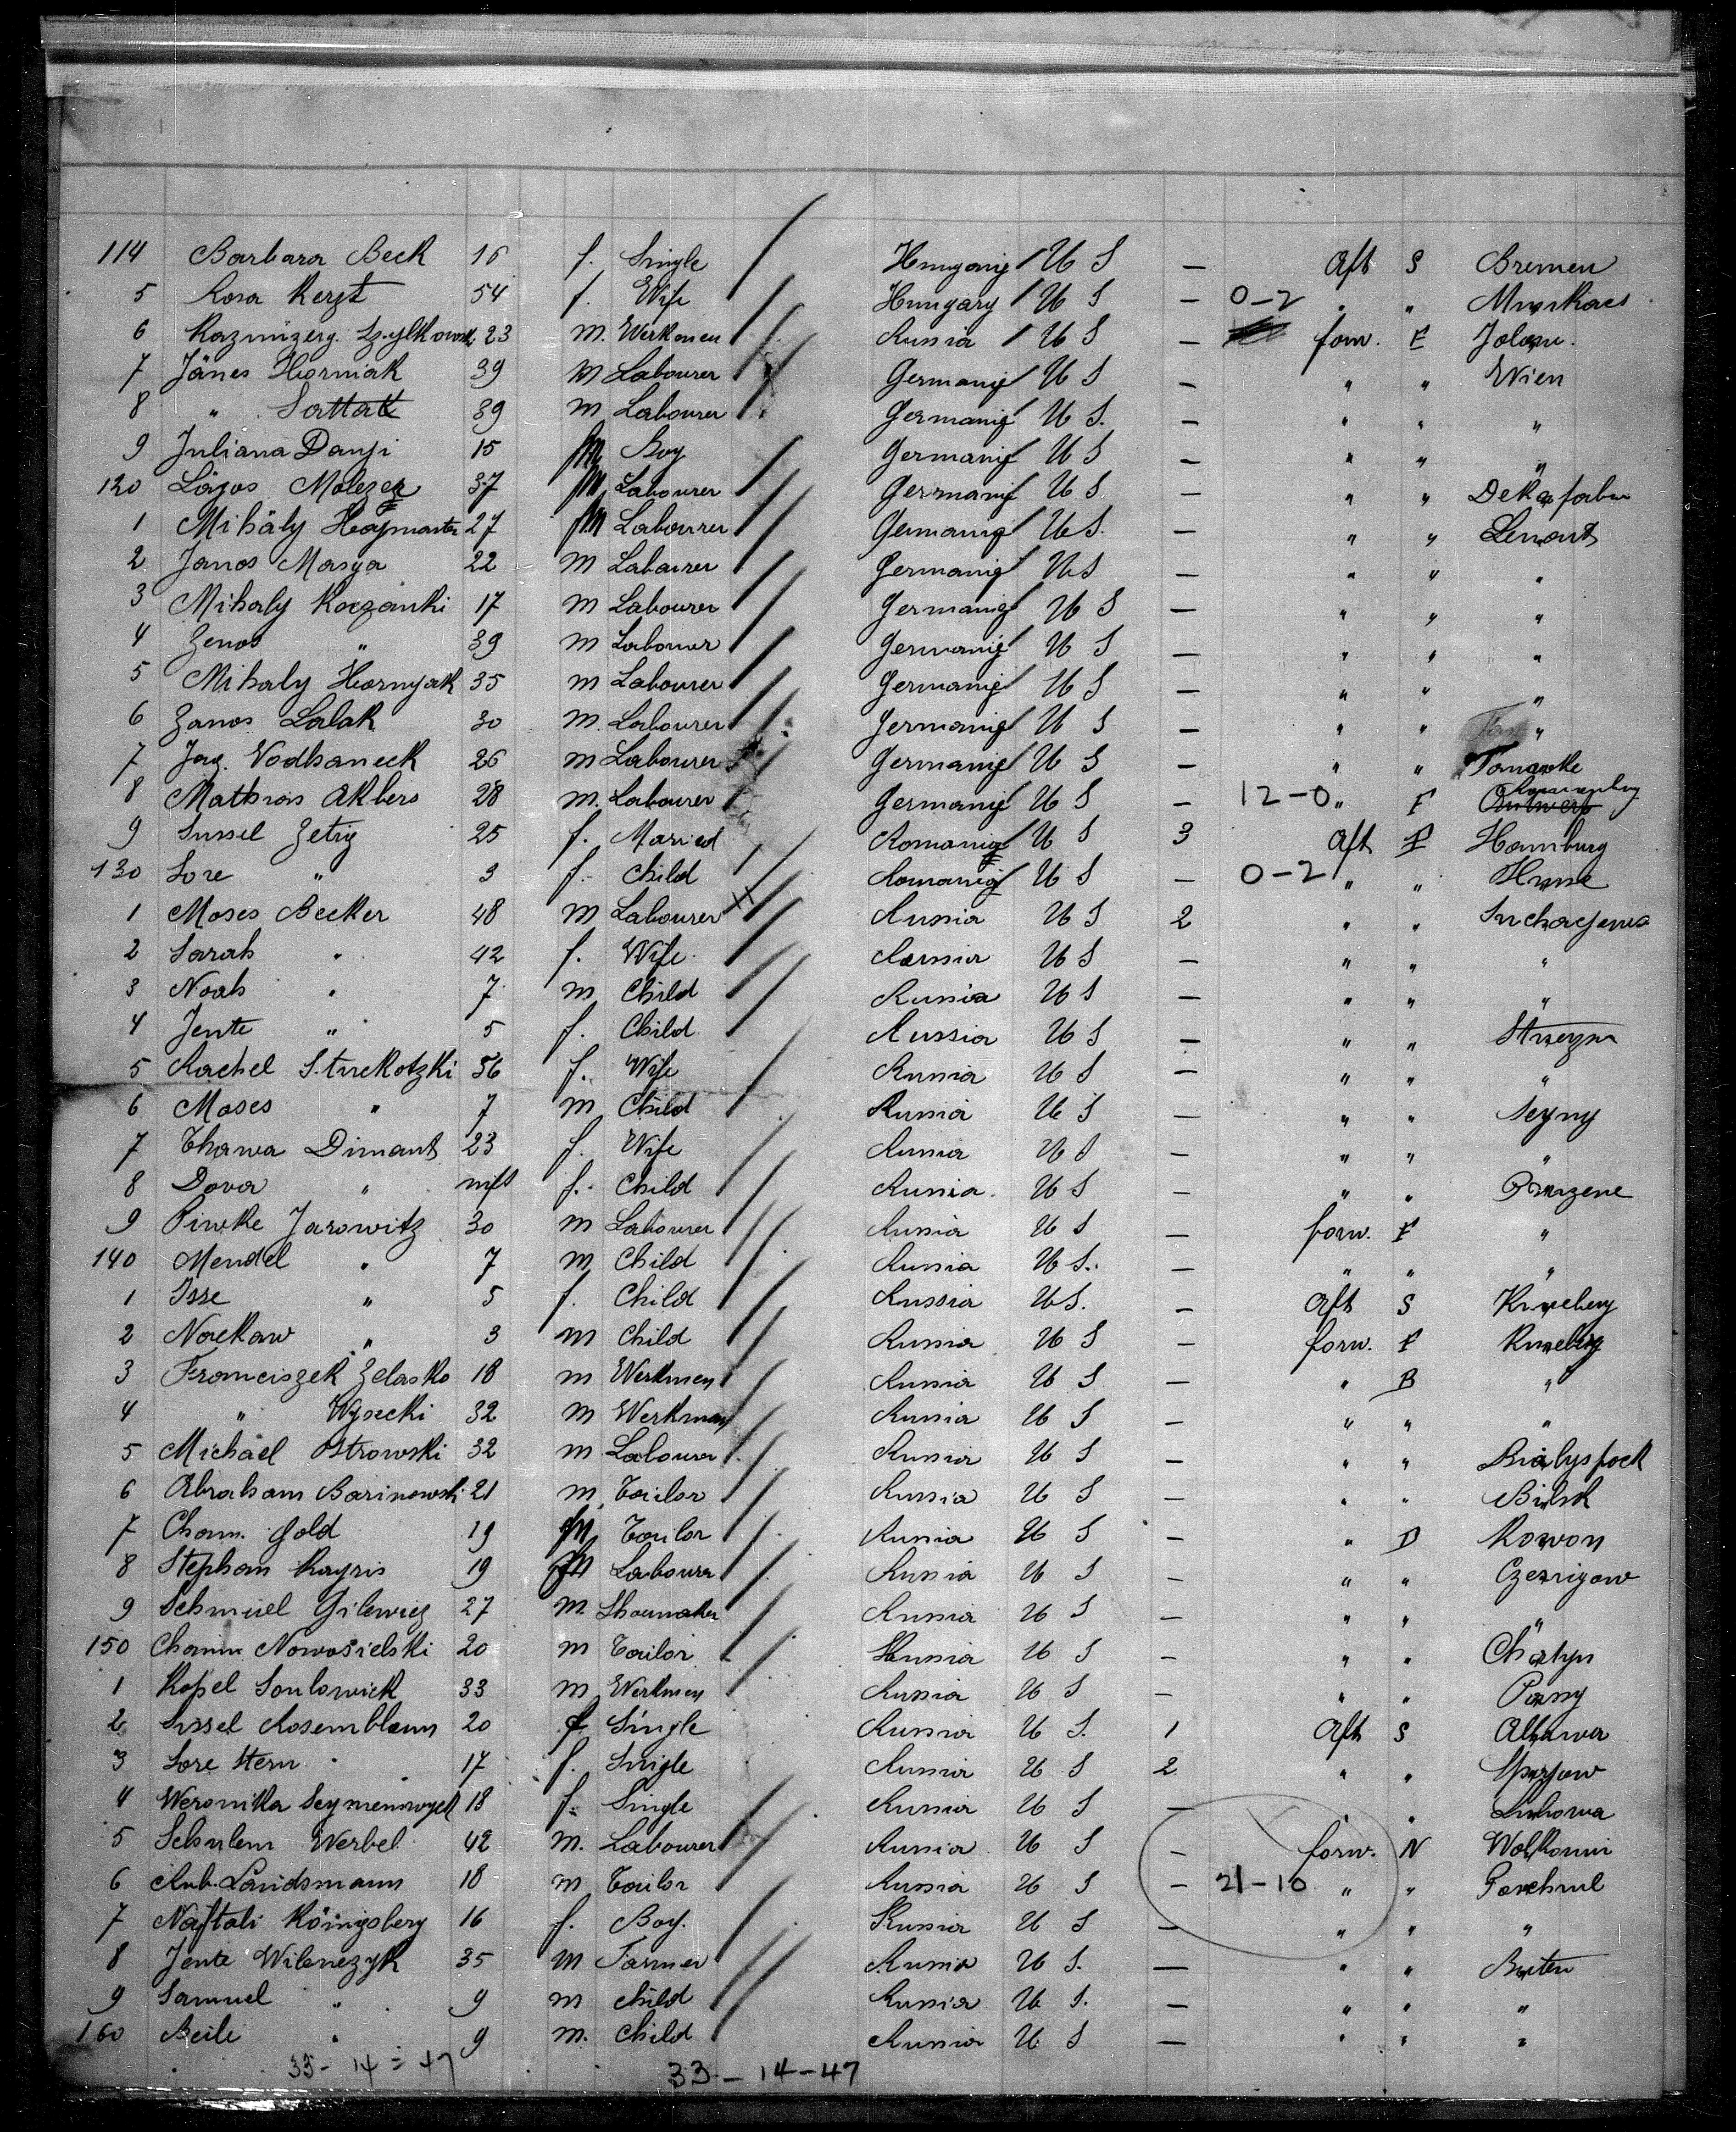 114 Barbara Beck 16 f. Single Hungarij U S — Aft S Bremen
5 Rosa Kerzt 54 f. Wife Hungary U S — 0-2 " " Munkacs
6 Kazmizerg. 23 m. Werkmen Russia U S — forw. F
7 Jänes Horniak 39 m Labourer Germanij U S — " " Wien
8 " Sattak 39 m Labourer Germanij U S. — " " "
9 Juliana Danji 15 m Boy Germanij U S — " " "
120 Lajos Molezer 37 m Labourer Germanij U S — " "
1 Mihäly 27 m Labourer Germanij U S. — " "
2 Janos Masya 22 m Labourer Germanij U S — " " "
3 Mihaly Koczanki 17 m Labourer Germanij U S — " " "
4 Zenos " 39 m Labourer Germanij U S — " " "
5 Mihaly Hornyak 35 m Labourer Germanij U S — " " "
6 Zanos Lalak 30 m. Labourer Germanij U S — " " "
7 Jag. Vodhaneck 26 m Labourer Germanij U S — " "
8 Mathias Akbers 28 m. Labourer Germanij U S — 12-0 " F
9 Sussel Zetig 25 f. Maried Romanij U S 3 Aft F Hamburg
130 Sore " 3 f. Child Romanij U S — 0-2 " "
1 Moses Becker 48 m Labourer Russia U S 2 " "
2 Sarah " 42 f. Wife Russia U S — " " "
3 Noah " 7 m Child Russia U S — " " "
4 Jente " 5 f. Child Russia U S — " "
5 Rachel Struckotzki 56 f. Wife Russia U S — " " "
6 Moses " 7 m Child Russia U S — " " Seyny
7 Chawa Dimant 23 f. Wife Russia U S — " " "
8 Dova " inft f. Child Russia U S — " "
9 Pinke Jarowitz 30 m Labourer Russia U S — forw. F "
140 Mendel " 7 m Child Russia U S. — " " "
1 Isse " 5 f. Child Russia U S. — Aft S
2 Nockaw " 3 m Child Russia U S — forw. F
3 Franciszek Zelasko 18 m Werkmen Russia U S — " B "
4 " Wysecki 32 m Werkman Russia U S — " " "
5 Michael Ostrowski 32 m Labourer Russia U S — " " Bialystock
6 Abraham Barinowski 21 m Tailor Russia U S — " " Bilsk
7 Cham. Gold 19 m Tailor Russia U S — " D Kowon
8 Stephan Rayris 19 m Labourer Russia U S — " "
9 Schmuel Gilewicz 27 m Shoemaker Russia U S — " " "
150 Chaim Nowosielski 20 m Tailor Russia U S — " "
1 Kopel Soulowick 33 m Werkmen Russia U S — " "
2 Sussel Rosemblaum 20 f. Single Russia U S. 1 Aft S
3 Sore Stern 17 f. Single Russia U S 2 " "
4 Weronika 18 f. Single Russia U S — " "
5 Schulem Werbel 42 m. Labourer Russia U S — forw. N
6 Rub. Landsmann 18 m Tailor Russia U S — 21-10 " "
7 Naftali Köingsberg 16 f. Boy. Russia U S — " " "
8 Jente Wilenczyk 35 m Farmer Russia U S. — " "
9 Samuel " 9 m child Russia U S. — " " "
160 Beile " 9 m. Child Russia U S — " " "
33-14=47 33-14-47